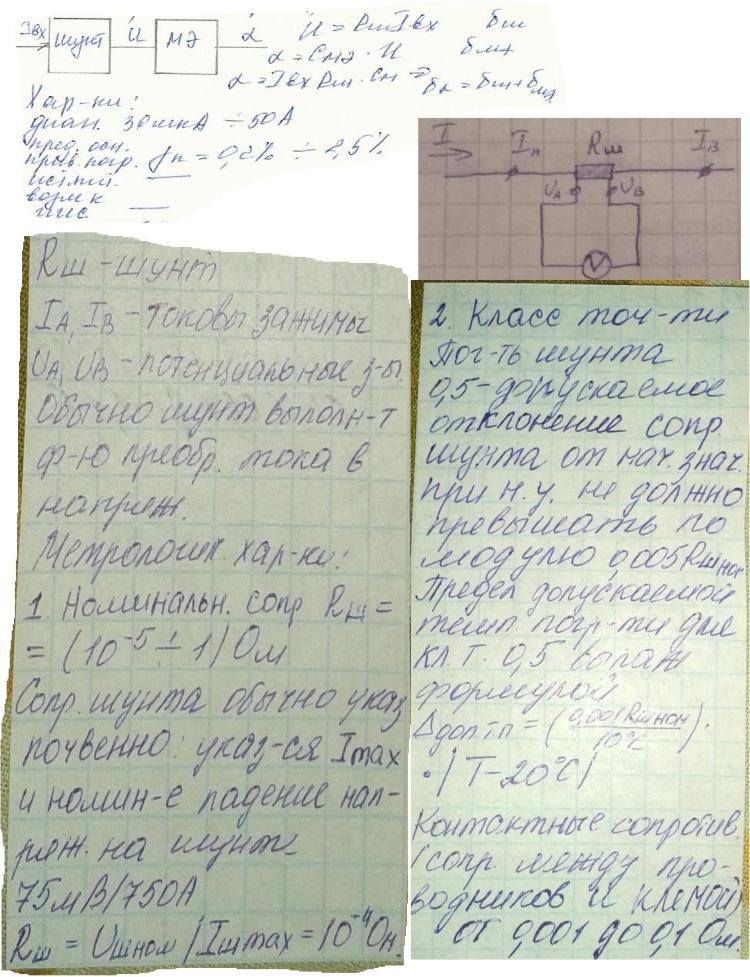 Iвх шунт U МЭ α U = Rш Iвх δш
α = Cмэ · U δмэ
α = Iвх Rш · Cм ⇒ δα = δш + δмэ
Хар-ки:
диап. 30мкА ÷ 50А
пред. осн.
прив. погр. γп = 0,2% ÷ 2,5%
возм к
I IA Rш IB
UA UB
V
Rш - шунт
IA, IB - токовы зажимы
UA, UB - потенциальные з-ы.
Обычно шунт выполн-т
ф-ю преобр. тока в
напряж.
Метрологич. хар-ки:
1. Номинальн. сопр Rш =
= (10⁻⁵ ÷ 1) Ом
Сопр. шунта обычно указ
почвенно: указ-ся Imax
и номин-е падение нап-
ряж. на шунте
75мВ/750А
Rш = Uшном / Iшmax = 10⁻⁴ Ом.
2. Класс точ-ти
Пог-ть шунта
0,5 - допускаемое
отклонение сопр.
шунта от нач. знач.
при н.у. не должно
превышать по
модулю 0,005 Rшном
Предел допускаемой
темп погр-ти для
кл. т. 0,5 выраж
формулой
Δдоп тп = (0,001 Rшном / 10°C) ·
· |T - 20°C|
Контактные сопротив.
(сопр. между про-
водников и клемой)
от 0,001 до 0,1 Ом.